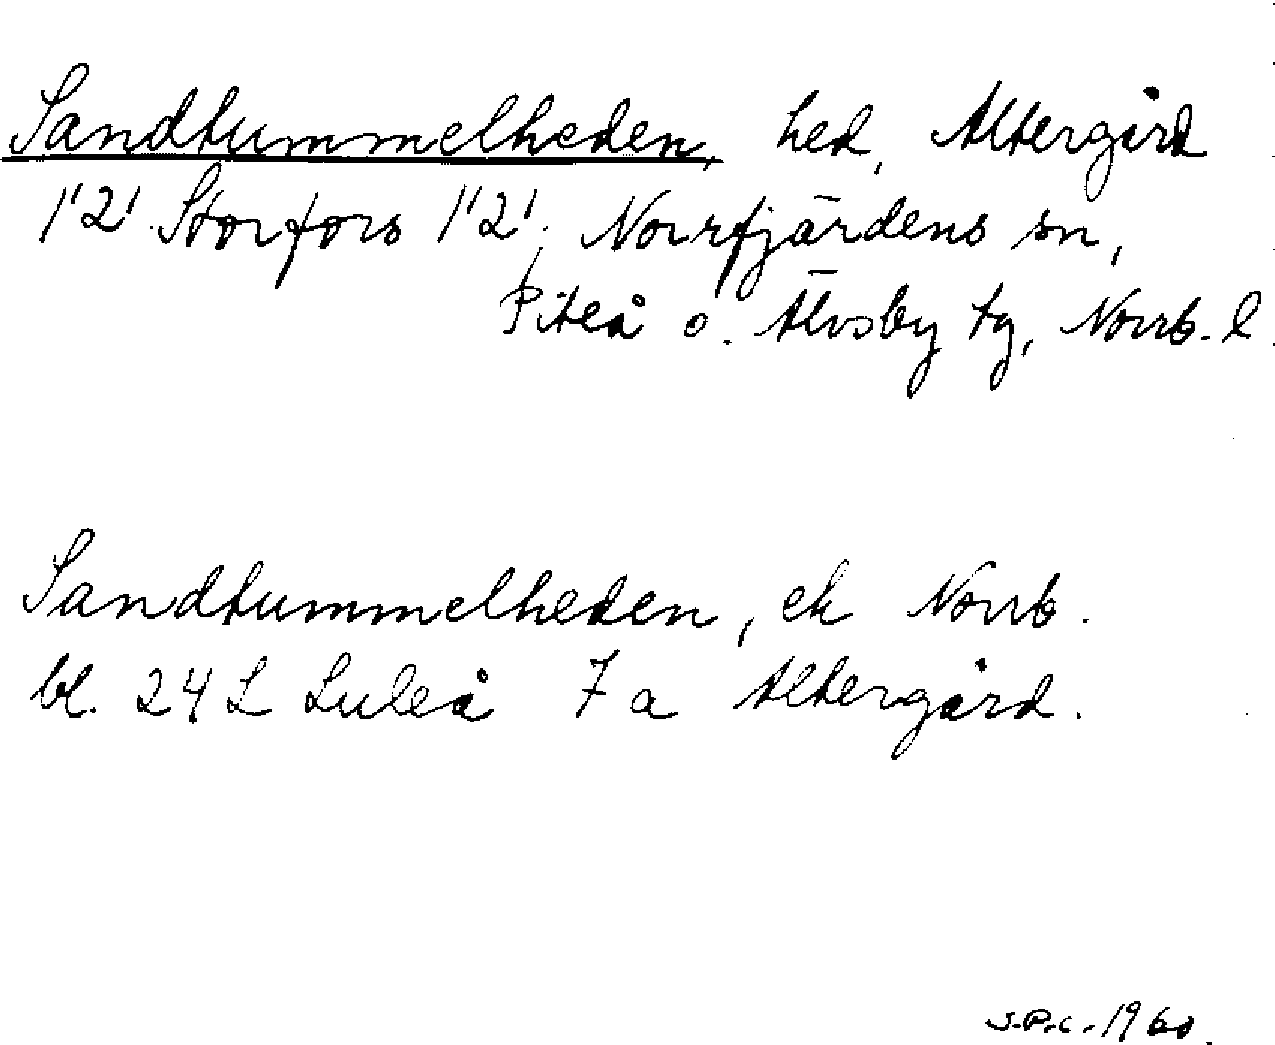 Sandtummelheden, hed, Altergård
1'2' Storfors 1'2', Norrfjärdens sn,
Piteå o. Älvsby tg, Norrb. l.
Sandtummelheden, ek Norrb.
bl. 24 L Luleå 7 a Altergård.
S.P.C. 1960.